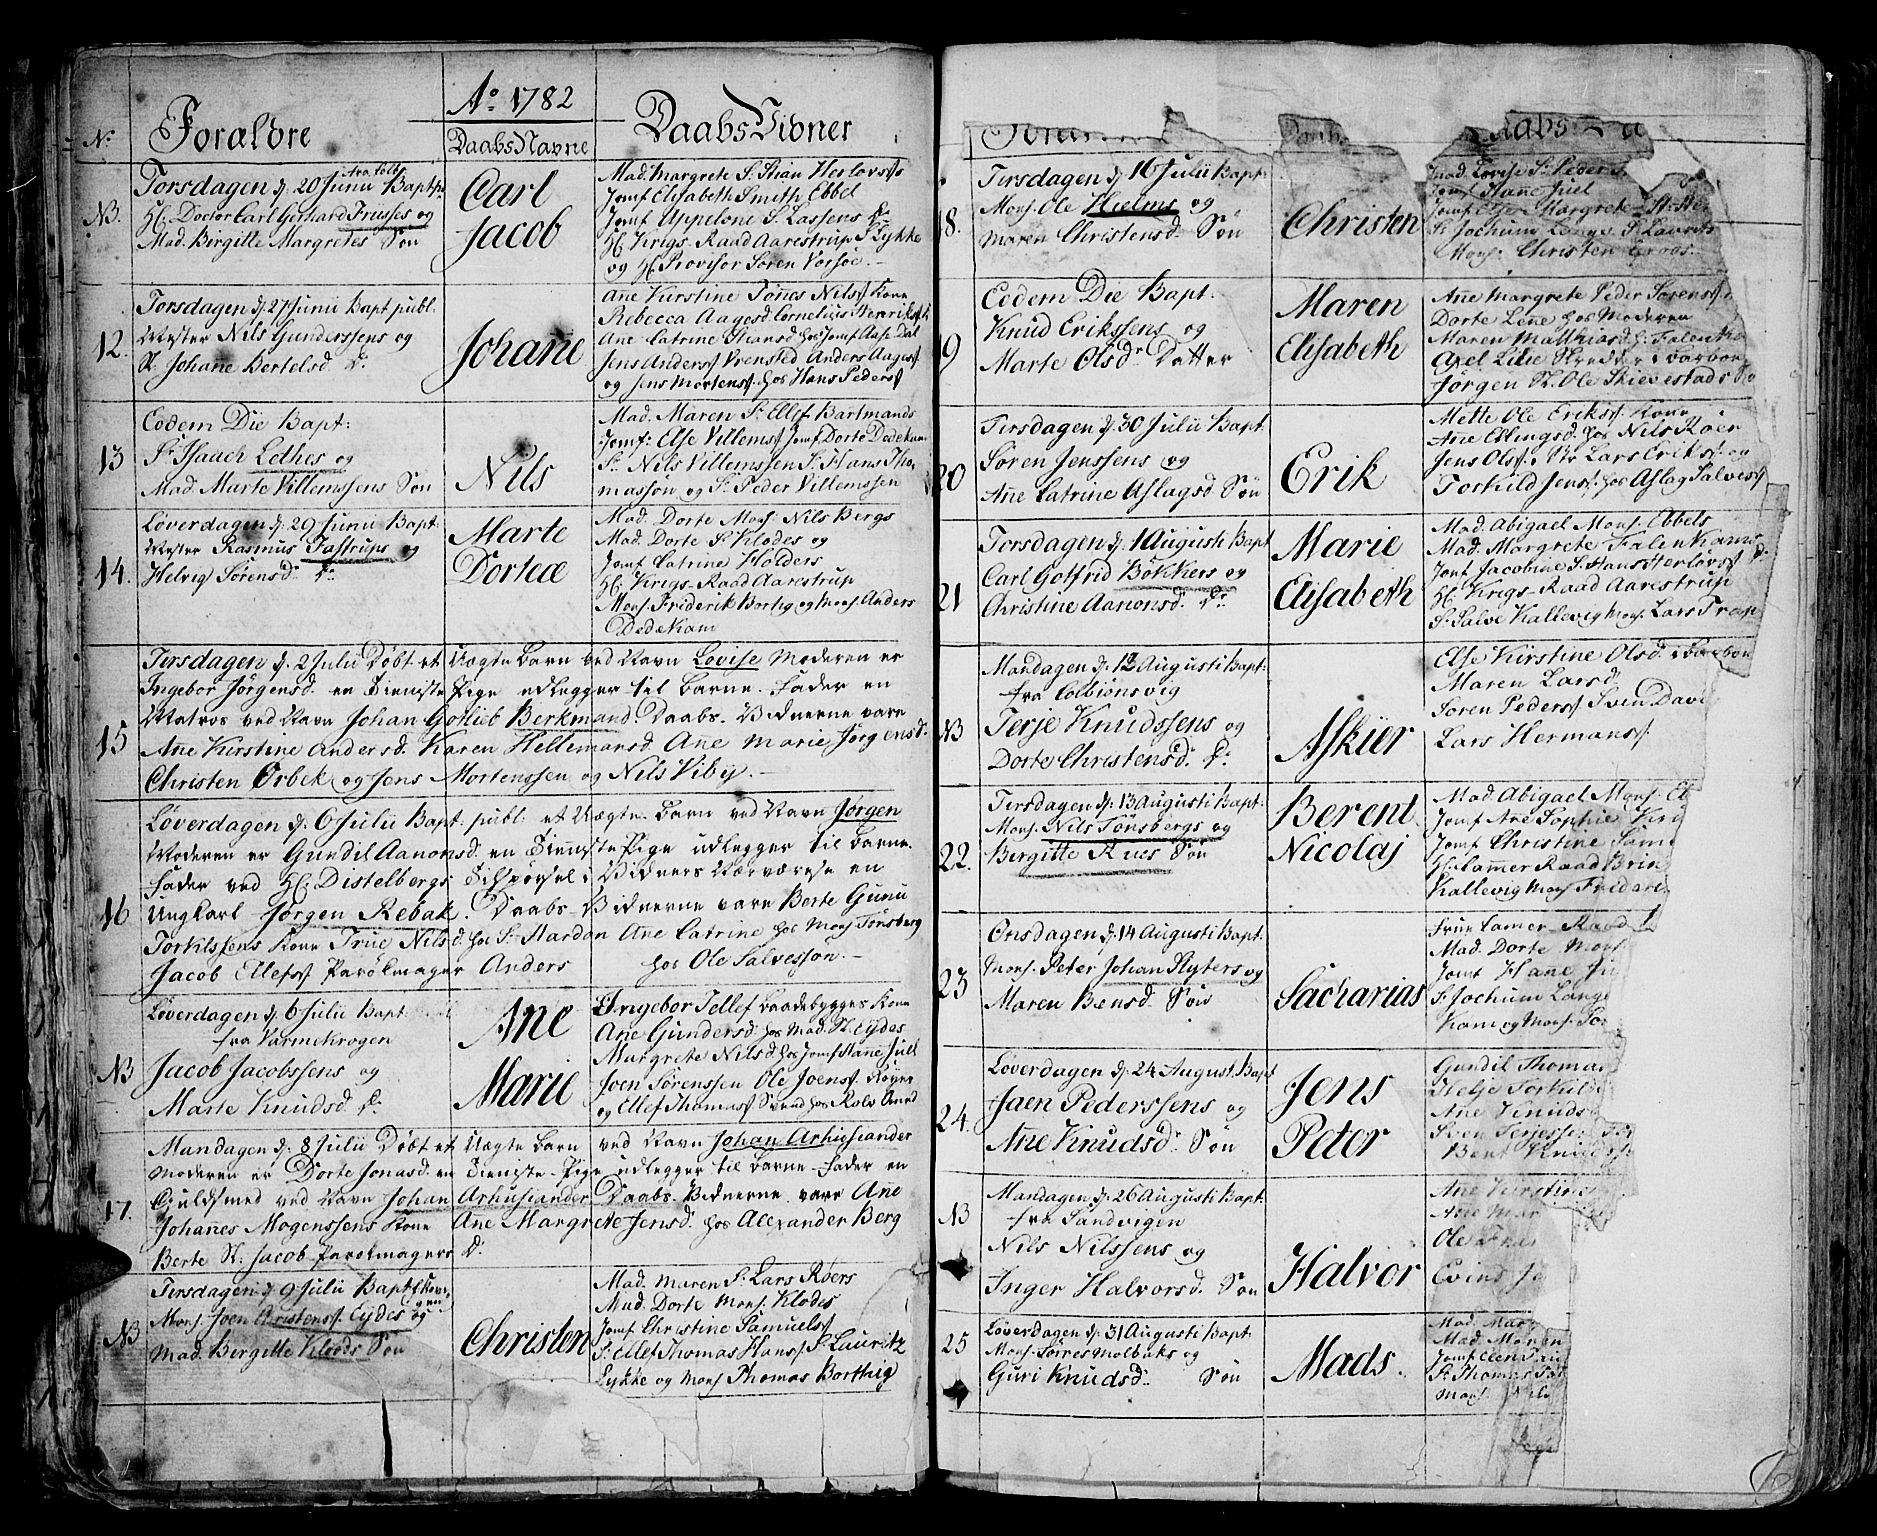 Ao 1782
No
Forældre
DaabsNavne
DaabsVidner
NB.
Torsdagen d. 20 Junii Bapt.
H. Doctor Carl Gerhard Frusses og
Mad. Birgitte Margretes Søn
Carl
Jacob
Mad. Margrete Sr. Stian Herlovss
Jomf Elisabeth Smith Ebbel
Jomf Appelone Sr. Lassens Dr.
H. Krigs-Raad Aarestrup Sr Lykke
og H. Provisor Søren Vorsøe.
12.
Torsdagen d. 27 Junii Bapt publ.
Mester Nils Gunderssens og
K. Johañe Bertelsd Dr.
Johañe
Añe Kirstine Tønes Nilss Kone
Rebecca Aagesd Cornelius Henrikss
Ane Catrine Hansd hos Jomf Aase Dal
Jens Anderss Vrensted Anders Aagess
og Jens Mortenss. hos Hans Pederss
13
Eodem Die Bapt:
Sr Isaach Lethes og
Mad. Marte Villemssens Søn
Nils
Mad. Maren Sr. Ellef Bartmands
Jomf: Else Villemss Jomf Dorte Dedekam
Sr. Nils Villemssen Sr. Hans Tho
massøn og Sr. Peder Villemssen
14.
Løverdagen d. 29 Junii Bapt:
Mester Rasmus Fastrups og
Helvig Sørensd. Dr.
Marte
Dorteæ
Mad. Dorte Mons. Nils Bergs
Mad. Dorte Sr. Klodes og
Jomf Catrine Holders
H. Krigs-Raad Aarestrup
Mons. Friderik Bortig og Mons. Anders
Dedekam
15
Tirsdagen d. 2 Julii Døbt et Uægte Barn ved Navn Lovise Moderen er
Ingebor Jørgensd. en Tieniste Pige udlegger til Barne-Fader en
Matros ved Navn Johan Gotlieb Berkmand Daabs-Vidnerne vare
Añe Kirstine Andersd. Karen Hellemansd. Añe Marie Jørgensd.
Christen Ørbek og Jens Mortenssen og Nils Viby.
16
Løverdagen d. 6 Julii Bapt: publ. et Uægte Barn ved Navn Jørgen
Moderen er Gundil Aanonsd. en Tieniste Pige udlegger til Barne-
Fader ved H. Distelbergs Tilspørsel i Vidners Nærværelse en
Ungkarl Jørgen Rebak. Daabs-Vidnerne vare Berte Gunu
Torkilssens Kone True Nilsd. hos Sr. Hardon Añe Catrine hos Mons Tønsberg
Jacob Ellefss Parøkmager Anders hos Ole Salvesson.
NB
Løverdagen d. 6 Julii Bapt
fra Varmekrogen
Jacob Jacobssens og
Marte Knudsd. Dr.
Ane
Marie
Ingebor Tellef Baadebygges Kone
Ane Gundersd hos Mad. Sr. Eydes
Margrete Nilsd hos Jomf Hañe Juel
Joen Sørenssen Ole Joenss
og Ellef Thomass Svend hos
17.
Mandagen d. 8 Julii Døbt et Uægte Barn ved Navn Johan Arhusiander
Moderen er Dorte Jonasd. en Tieniste-Pige udlegger til Barne-Fader en
Guldsmed ved Navn Johan Arhusiander Daabs-Vidnerne vare Ane
Johañes Mogenssens Kone Ane Margrete Jensd. hos Alexander Berg
Berte K. Jacob Parøkmagers Dr.
NB
Tirsdagen d. 9 Julii Bapt
Mons. Joen Christenss. Eydes og
Mad. Bergitte Klods Søn
Christen
Mad. Maren Sr. Lars Røers
Mad. Dorte Mons. Klodes
Jomf Christine Samuelss
Sr. Ellef Thomas Hanss Sr. Lauritz
Lykke og Mons Thomas Borthig
18.
Tirsdagen d. 16 Julii Bapt:
Mons. Ole Hielms og
Maren Christensd. Søn
Christen
Mad. Lovise Sr. Peder
Jomf Hañe Juel
Jomf Else Margrete
Sr Jochum Lange Sr Laurits
Mons. Christen Groos.
19
Eodem Die Bapt.
Knud Erikssens og
Marte Olsdr Datter
Maren
Elisabeth
Añe Margrete Peder Sørenss.
Dorte Lene hos Moderen
Maren Mathiasd. H. Falenkam
Axel Lilie Skredder i Barboe
Jørgen K. Ole Skievestads Søn
20
Tirsdagen d. 30 Julii Bapt.
Søren Jenssens og
Añe Catrine Aslagsd. Søn
Erik
Mette Ole Erikss. Kone
Añe Ellingsd. hos Nils Roer
Jens Olss. i Lars Erikss. og
Torkild Jenss. hos Aslag Salvess
21
Torsdagen d. 1 Augusti Bapt
Carl Gotfrid Bökkers og
Christine Aanonsd. Dr.
Marie
Elisabeth
Mad. Abigael Mons. Ebbels
Mad. Margrete Falenkams
Jomf Jacobine Sr Hans Herlovss Dr.
H. Krigs-Raad Aarestrup
Sr. Salve Kallevig Mons. Lars Trap
NB
Mandagen d. 12 Augusti Bapt:
fra Colbiønsvig
Terje Knudssens og
Dorte Christensd. Dr.
Askier
Else Kirstine Olsd. i Barboe
Maren Larsd.
Søren Pederss Sven Davi
Lars Hermanss.
22.
Tirsdagen d. 13 Augusti Bapt:
Mons. Nils Tönsbergs og
Bergitte Rües Søn
Berent
Nicolaj
Mad. Abigael Mons. Eb
Jomf Ane Sophie
Jomf Christine Sam
H. Cammer Raad Brin
Kallevig Mons Frideri
23
Onsdagen d. 14 Augusti Bapt.
Mons. Peter Johan Ryters og
Maren Bænsd. Søn
Sacharias
Frue Camer-Raad
Mad. Dorte Mons
Jomf Hañe Ju
Sr Jochum Lange
Kam og Mons. Sør
24.
Løverdagen d. 24 August. Bapt
Jaen Pederssens og
Añe Knudsdr Søn
Jens
Peter
Gundil Thomas
Helje Torkilds
Ane Knuds
Sven Terjessen
Bent Knudss.
NB
Mandagen d. 26 Augusti Bapt.
fra Sandvigen
Nils Nilssens og
Inger Halvorsd. Søn
Halvor
Añe Kirstine
Ane Mar
Ole
Evind
25
Løverdagen d. 31 Augusti Bapt.
Mons. Sørres Molbaks og
Guri Knudsd. Søn
Mads.
Mad. Marg
Mad. Maren
Jomf Elen
Sr Thomas
Mons. Nils